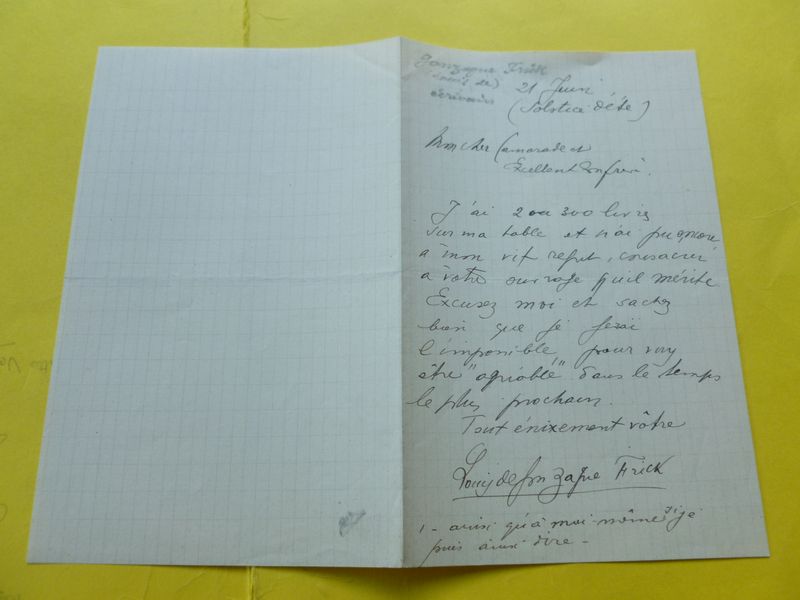 Gonzague Frick
écrivain
21 Juin
(Solstice d'été)
Mon cher Camarade et
Excellent Confrère.
J'ai 2 ou 300 livres
sur ma table et n'ai pu encore,
à mon vif regret, consacrer
à votre ouvrage qu'il mérite
Excusez moi et sachez
bien que je ferai
l'impossible, pour vous
être "agréable" dans le temps
le plus prochain.
Tout énixement vôtre
Louis de Gonzague Frick
1 - ainsi qu'à moi-même si je
puis ainsi dire -